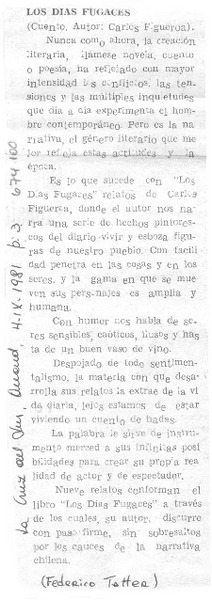 LOS DIAS FUGACES
(Cuento. Autor: Carlos Figueroa).
Nunca como ahora, la creación
literaria, llámese novela, cuento
o poesía, ha reflejado con mayor
intensidad los conflictos, las ten-
siones y las múltiples inquietudes
que día a día experimenta el hom-
bre contemporáneo. Pero es la na-
rrativa, el género literario que me
jor refleja estas actitudes y la
época.
Es lo que sucede con "Los
Días Fugaces" relatos de Carlos
Figueroa, donde el autor nos na-
rra una serie de hechos pintores-
cos del diario vivir y esboza figu-
ras de nuestro pueblo. Con facili-
dad penetra en las cosas y en los
seres, y la gama en que se mue-
ven sus personajes es amplia y
humana.
Con humor nos habla de se-
res sensibles, caóticos, ilusos y has-
ta de un buen vaso de vino.
Despojado de todo sentimen-
talismo, la materia con que desa-
rrolla sus relatos la extrae de la vi
da diaria, lejos estamos de estar
viviendo un cuento de hadas.
La palabra le sirve de instru-
mento merced a sus infinitas posi
bilidades para crear su propia rea
lidad de actor y de espectador.
Nueve relatos conforman el
libro "Los Días Fugaces" a través
de los cuales, su autor, discurre
con paso firme, sin sobresaltos
por los cauces de la narrativa
chilena.
(Federico Tatter)
La Cruz del Sur, Ancud, 4-IX-1981 p. 3 674100